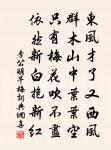 東風才有又西風
群木山中葉葉空
只有梅花吹不盡
依然新白抱新紅
李公明早梅